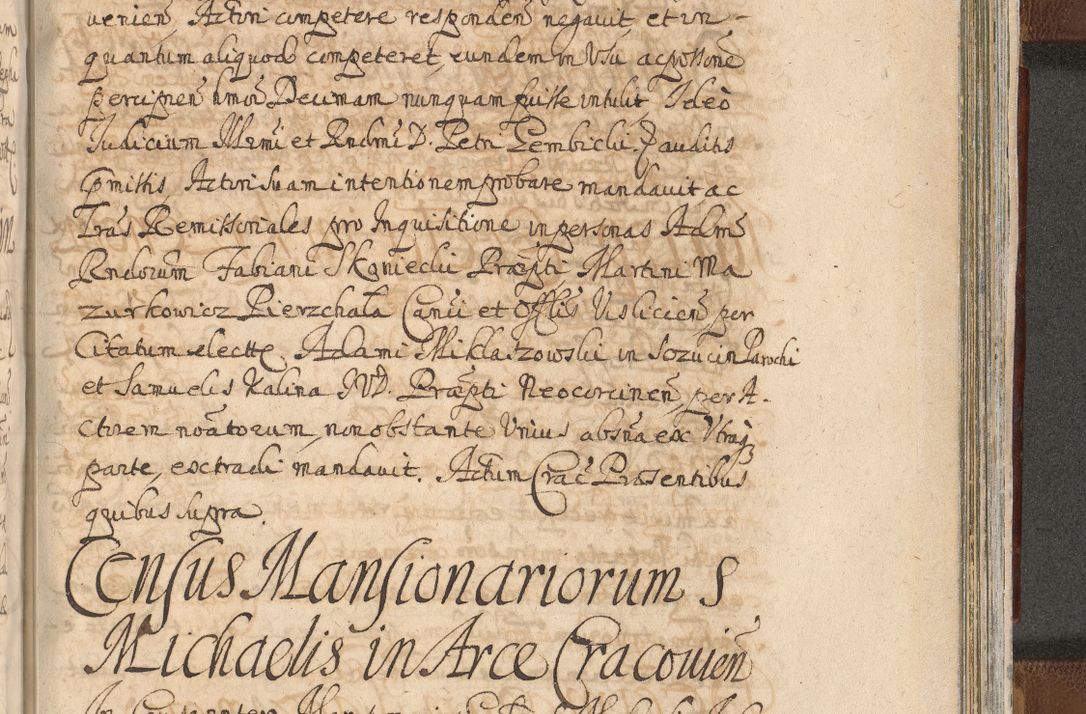 uenien̄, Actori competere responden̄ negauit, et in-
quantum aliquod competeret, eundem in Usu ac possone
percipien̄ hmoi Decimam nunquam fuisse intulit, Ideo
Iudicium Illrmi et Rndmi D. Petri Gembicki. E. auditis
pmissis, Actori suam intentionem probare mandauit ac
Lras Remissoriales pro Inquisitione in personas Adm
Rndorum Fabiani Skoniecki Præpti, Martini Ma
zurkowicz Pierzchała Canci et Offlis Uislicien̄ per
Citatum electæ, Adami Miklaszowski in Parochi
et Samuelis Kalina IVD. Præpti Neocorcinen̄, per A-
ctorem noatorum, non obstante Unius absna ex Utraq
parte, extradi mandauit. Actum Crac Præsentibus
quibus supra.
Census Mansionariorum S
Michaelis in Arce Cracouien̄